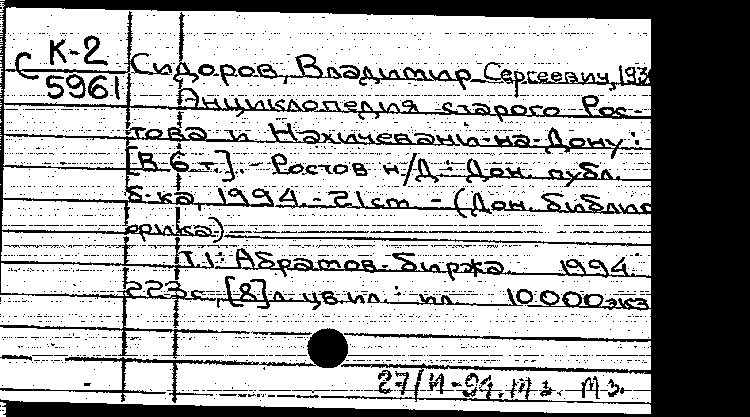 С К-2
5961
Сидоров, Владимир Сергеевич, 193
Энциклопедия старого Рос-
това и Нахичевани-на-Дону :
[В 6 т.]. - Ростов н/Д : Дон. публ.
б-ка, 1994. - 21 cm. - (Дон. библио
ерика)
Т.1: Абрамов - Биржа. 1994.
223 с., [8] л. цв. ил. : ил. 10 000 экз